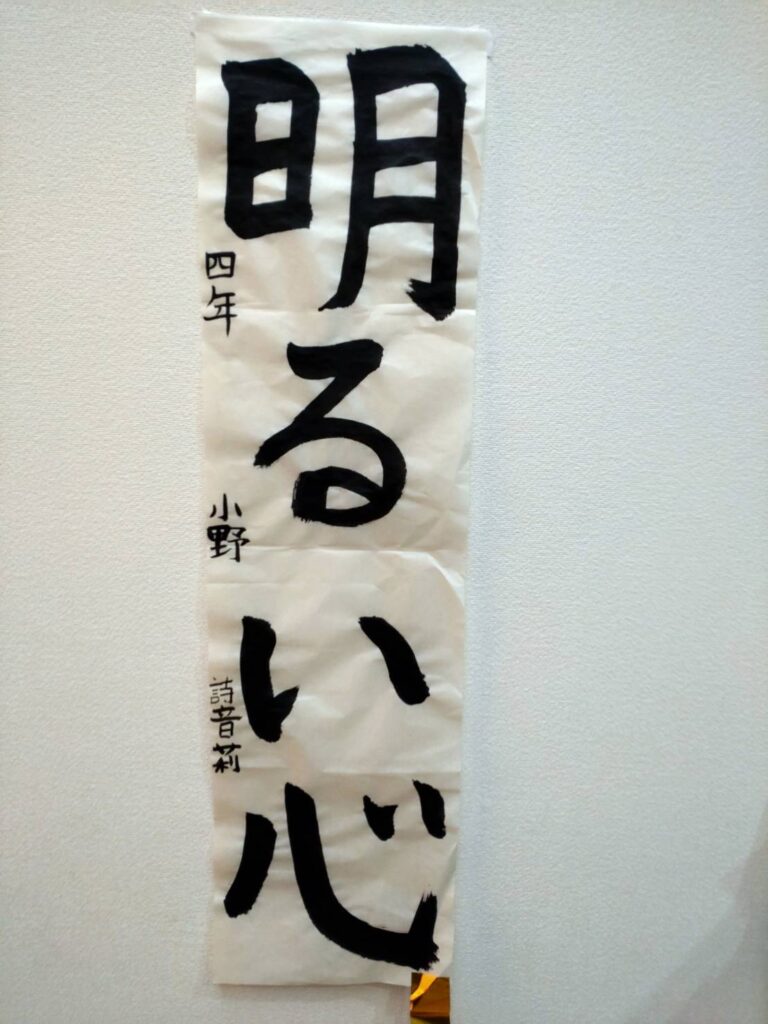 明るい心
四年 小野 詩音莉